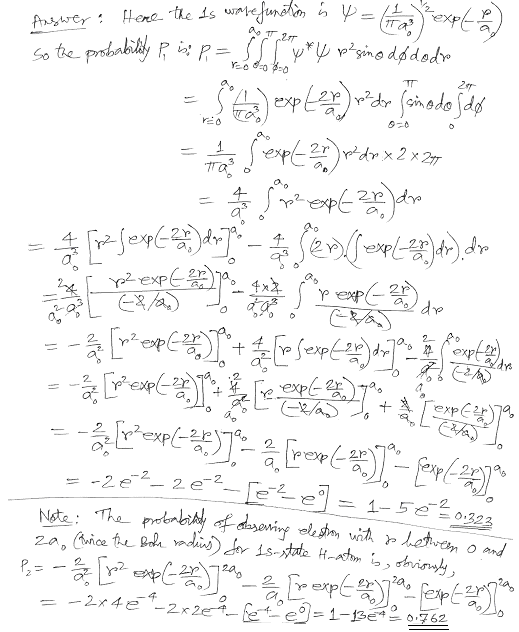 Answer: Here the 1s wavefunction is ψ = (1/πa₀³)^1/2 exp(-r/a₀)
So the probability P₁ is: P₁ = ∫_{r=0}^{a₀} ∫_{θ=0}^{π} ∫_{φ=0}^{2π} ψ*ψ r² sinθ dφ dθ dr
= ∫_{r=0}^{a₀} (1/πa₀³) exp(-2r/a₀) r² dr ∫_{θ=0}^{π} sinθ dθ ∫_0^{2π} dφ
= 1/πa₀³ ∫_0^{a₀} exp(-2r/a₀) r² dr × 2 × 2π
= 4/a₀³ ∫_0^{a₀} r² exp(-2r/a₀) dr
= 4/a₀³ [r² ∫exp(-2r/a₀) dr]_0^{a₀} - 4/a₀³ ∫_0^{a₀} (2r).(∫exp(-2r/a₀) dr).dr
= 4/a₀³ [r² exp(-2r/a₀)/(-2/a₀)]_0^{a₀} - 4×2/a₀³ ∫_0^{a₀} r exp(-2r/a₀)/(-2/a₀) dr
= -2/a₀² [r² exp(-2r/a₀)]_0^{a₀} + 4/a₀² [r ∫exp(-2r/a₀) dr]_0^{a₀} - 4/a₀² ∫_0^{a₀} exp(-2r/a₀)/(-2/a₀) dr
= -2/a₀² [r² exp(-2r/a₀)]_0^{a₀} + 4/a₀² [r exp(-2r/a₀)/(-2/a₀)]_0^{a₀} + 2/a₀ [exp(-2r/a₀)/(-2/a₀)]_0^{a₀}
= -2/a₀² [r² exp(-2r/a₀)]_0^{a₀} - 2/a₀ [r exp(-2r/a₀)]_0^{a₀} - [exp(-2r/a₀)]_0^{a₀}
= -2e⁻² - 2e⁻² - [e⁻² - e⁰] = 1 - 5e⁻² = 0.323
Note: The probability of observing electron with r between 0 and
2a₀ (twice the Bohr radius) for 1s-state H-atom is, obviously,
P₂ = -2/a₀² [r² exp(-2r/a₀)]_0^{2a₀} - 2/a₀ [r exp(-2r/a₀)]_0^{2a₀} - [exp(-2r/a₀)]_0^{2a₀}
= -2×4e⁻⁴ - 2×2e⁻⁴ - [e⁻⁴ - e⁰] = 1 - 13e⁻⁴ = 0.762